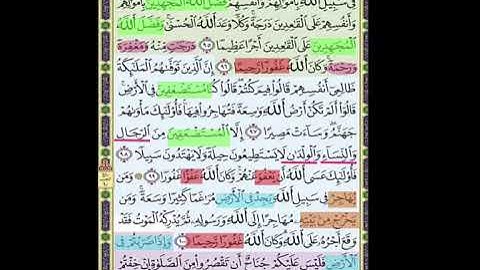 فِي سَبِيلِ ٱللَّهِ بِأَمْوَٰلِهِمْ وَأَنفُسِهِمْ فَضَّلَ ٱللَّهُ ٱلْمُجَٰهِدِينَ بِأَمْوَٰلِهِمْ
وَأَنفُسِهِمْ عَلَى ٱلْقَٰعِدِينَ دَرَجَةً وَكُلًّا وَعَدَ ٱللَّهُ ٱلْحُسْنَىٰ وَفَضَّلَ ٱللَّهُ
ٱلْمُجَٰهِدِينَ عَلَى ٱلْقَٰعِدِينَ أَجْرًا عَظِيمًا ٩٥ دَرَجَٰتٍ مِّنْهُ وَمَغْفِرَةً
وَرَحْمَةً وَكَانَ ٱللَّهُ غَفُورًا رَّحِيمًا ٩٦ إِنَّ ٱلَّذِينَ تَوَفَّىٰهُمُ ٱلْمَلَٰٓئِكَةُ
ظَالِمِىٓ أَنفُسِهِمْ قَالُوا۟ فِيمَ كُنتُمْ قَالُوا۟ كُنَّا مُسْتَضْعَفِينَ فِى ٱلْأَرْضِ
قَالُوٓا۟ أَلَمْ تَكُنْ أَرْضُ ٱللَّهِ وَٰسِعَةً فَتُهَاجِرُوا۟ فِيهَا فَأُو۟لَٰٓئِكَ مَأْوَىٰهُمْ
جَهَنَّمُ وَسَآءَتْ مَصِيرًا ٩٧ إِلَّا ٱلْمُسْتَضْعَفِينَ مِنَ ٱلرِّجَالِ
وَٱلنِّسَآءِ وَٱلْوِلْدَٰنِ لَا يَسْتَطِيعُونَ حِيلَةً وَلَا يَهْتَدُونَ سَبِيلًا ٩٨
فَأُو۟لَٰٓئِكَ عَسَى ٱللَّهُ أَن يَعْفُوَ عَنْهُمْ وَكَانَ ٱللَّهُ عَفُوًّا غَفُورًا ٩٩ وَمَن
يُهَاجِرْ فِى سَبِيلِ ٱللَّهِ يَجِدْ فِى ٱلْأَرْضِ مُرَٰغَمًا كَثِيرًا وَسَعَةً وَمَن
يَخْرُجْ مِنۢ بَيْتِهِۦ مُهَاجِرًا إِلَى ٱللَّهِ وَرَسُولِهِۦ ثُمَّ يُدْرِكْهُ ٱلْمَوْتُ فَقَدْ
وَقَعَ أَجْرُهُۥ عَلَى ٱللَّهِ وَكَانَ ٱللَّهُ غَفُورًا رَّحِيمًا ١٠٠ وَإِذَا ضَرَبْتُمْ فِى
ٱلْأَرْضِ فَلَيْسَ عَلَيْكُمْ جُنَاحٌ أَن تَقْصُرُوا۟ مِنَ ٱلصَّلَوٰةِ إِنْ خِفْتُمْ